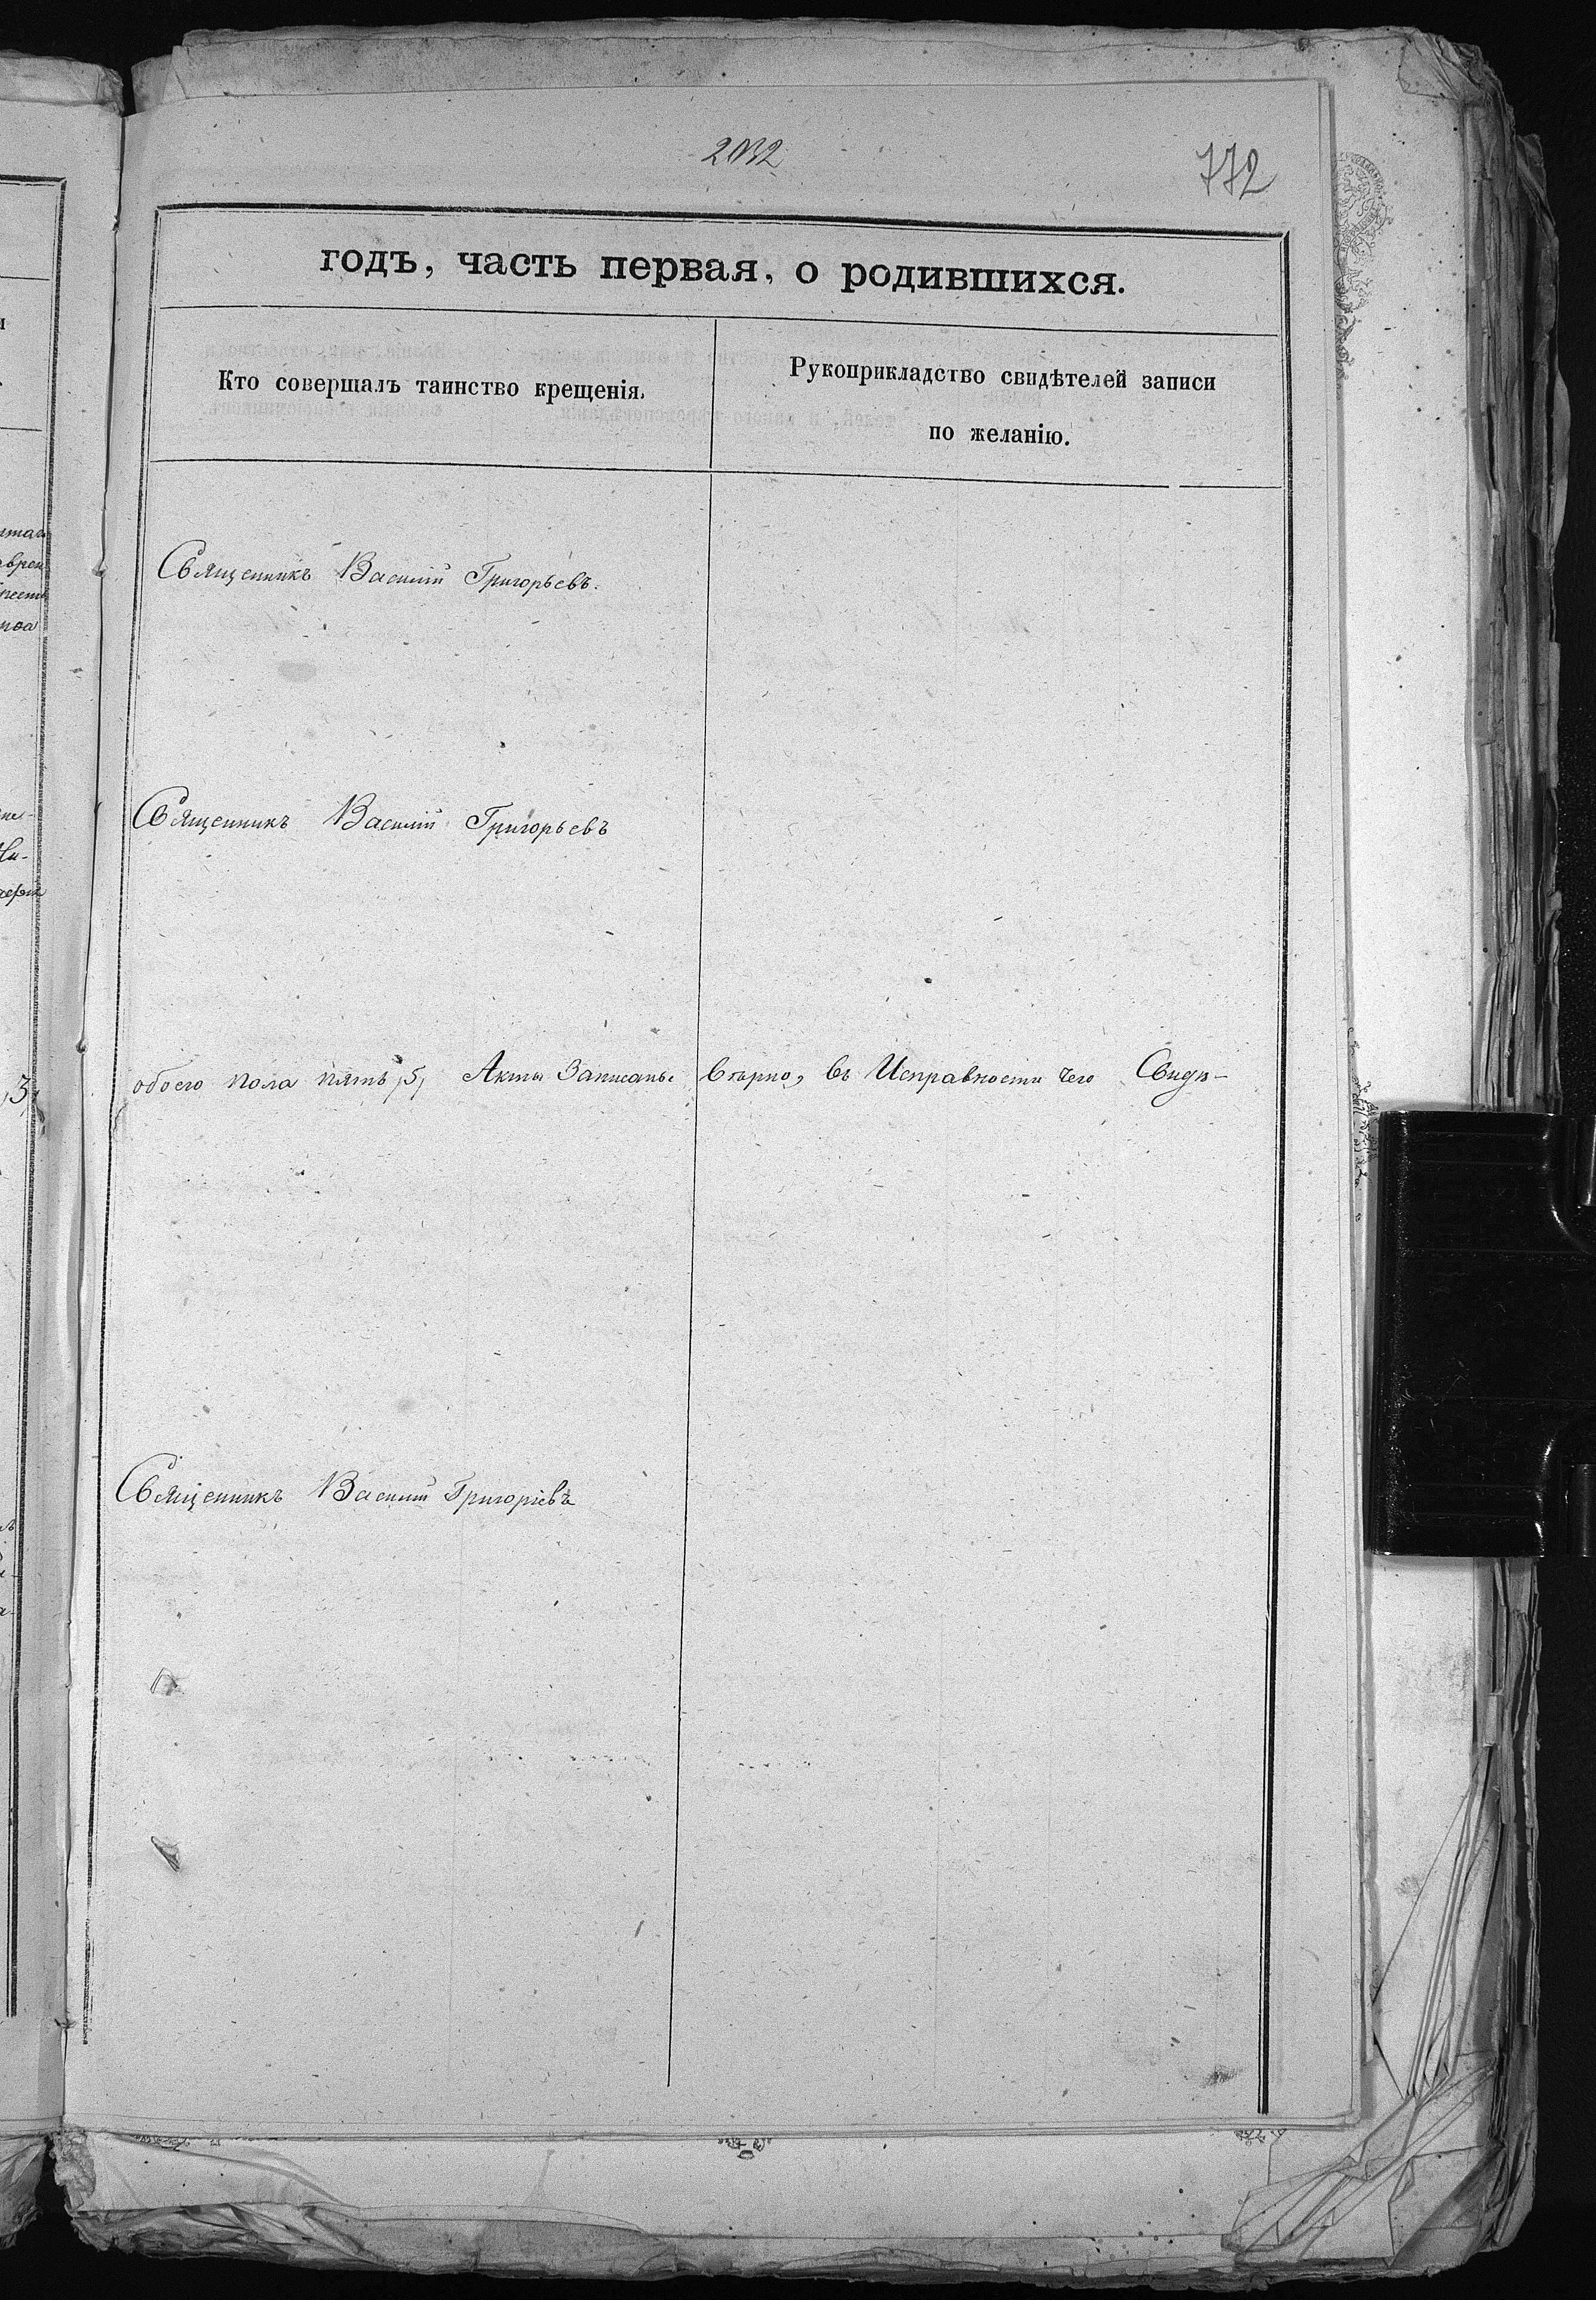 2032
772
годъ, часть первая, о родившихся.
Кто совершалъ таинство крещенія.
Рукоприкладство свидѣтелей записи
по желанію.
Священникъ Василій Григорьевъ.
Священникъ Василій Григорьевъ
3
обоего пола пять /5/ Акты Записаны вѣрно, въ Исправности чего Свидѣ-
Священникъ Василій Григоріевъ